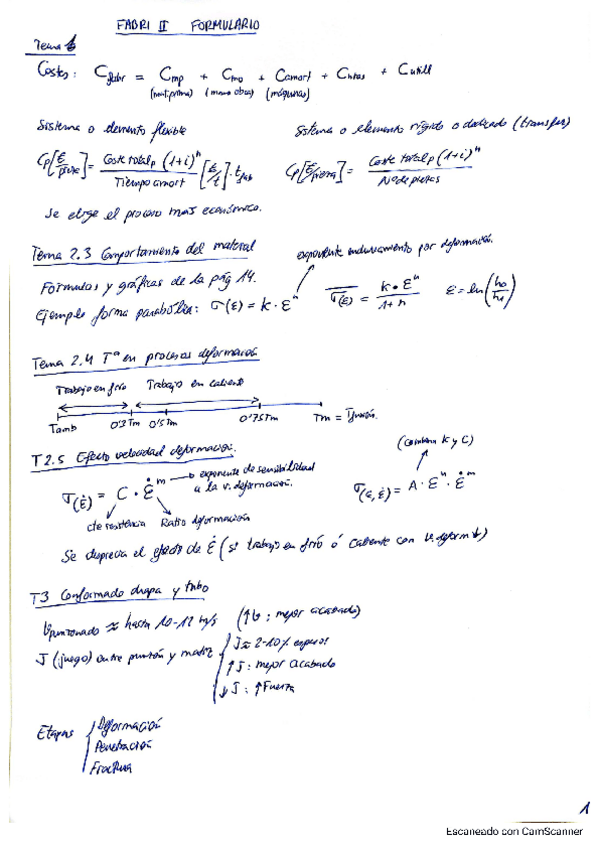 FABRI II FORMULARIO
Tema 1
Costes: Cfabr = Cmp + Cmo + Camort + + Cutill
(mat.prima) (mano obra) (máquinas)
Sistema o elemento flexible
Cp[€/pieza] = Coste totalp (1+i)^n / Tiempo amort [€/t] · tfab
Sistema o elemento rígido o dedicado (transfer)
Cp[€/pieza] = Coste totalp (1+i)^n / Nº de piezas
Se elige el proceso más económico.
Tema 2.3 Comportamiento del material
exponente endurecimiento por deformación.
Fórmulas y gráficas de la pág 14.
Ejemplo forma parabólica: σ(ε) = k · ε^n
σ(ε) = k · ε^n / 1+n ε = ln(h0/h1)
Tema 2.4 Tª en procesos deformación
Trabajo en frío Trabajo en caliente
Tamb 0'3Tm 0'5Tm 0'75Tm Tm = Tfusión.
T2.5 Efecto velocidad deformación.
(combina K y C)
σ(ε̇) = C · ε̇^m → exponente de sensibilidad
a la v. deformación.
σ(ε,ε̇) = A · ε^n · ε̇^m
cte resistencia Ratio deformación
Se desprecia el efecto de ε̇ (si trabajo en frío ó caliente con v. deform ↓)
T3 Conformado chapa y tubo
Vpunzonado ≈ hasta 10-12 m/s (↑v : mejor acabado)
J (juego) entre punzón y matriz
J ≈ 2-10% espesor
↑J : mejor acabado
↓J : ↑Fuerza
Etapas
Deformación
Penetración
Fractura
1
Escaneado con CamScanner